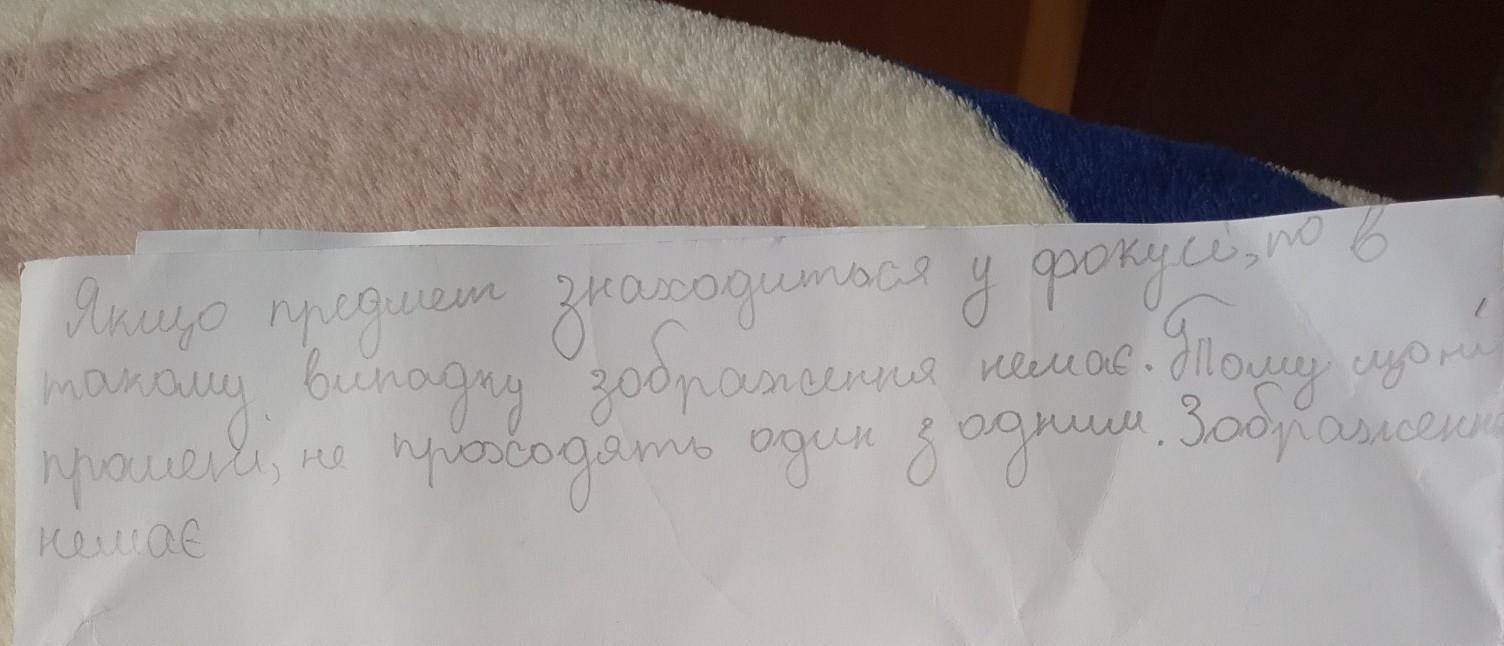 Якщо предмет знаходиться у фокусі, то в
такому випадку зображення немає. Тому що ні
промені, не проходять один з одним. Зображенн
немає